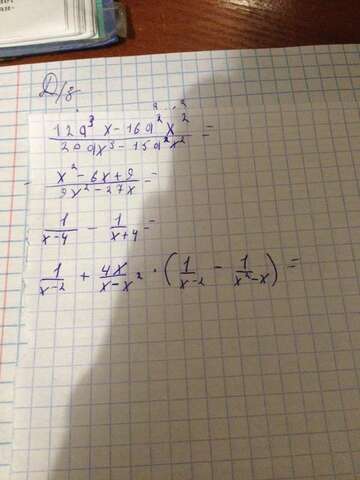 Д/з.
12a³x - 16a²x² / 20ax³ - 15a²x² =
x² - 6x + 9 / 9x² - 27x =
1/x-4 - 1/x+4 =
1/x-2 + 4x/x-x² · (1/x-2 - 1/x²-x) =